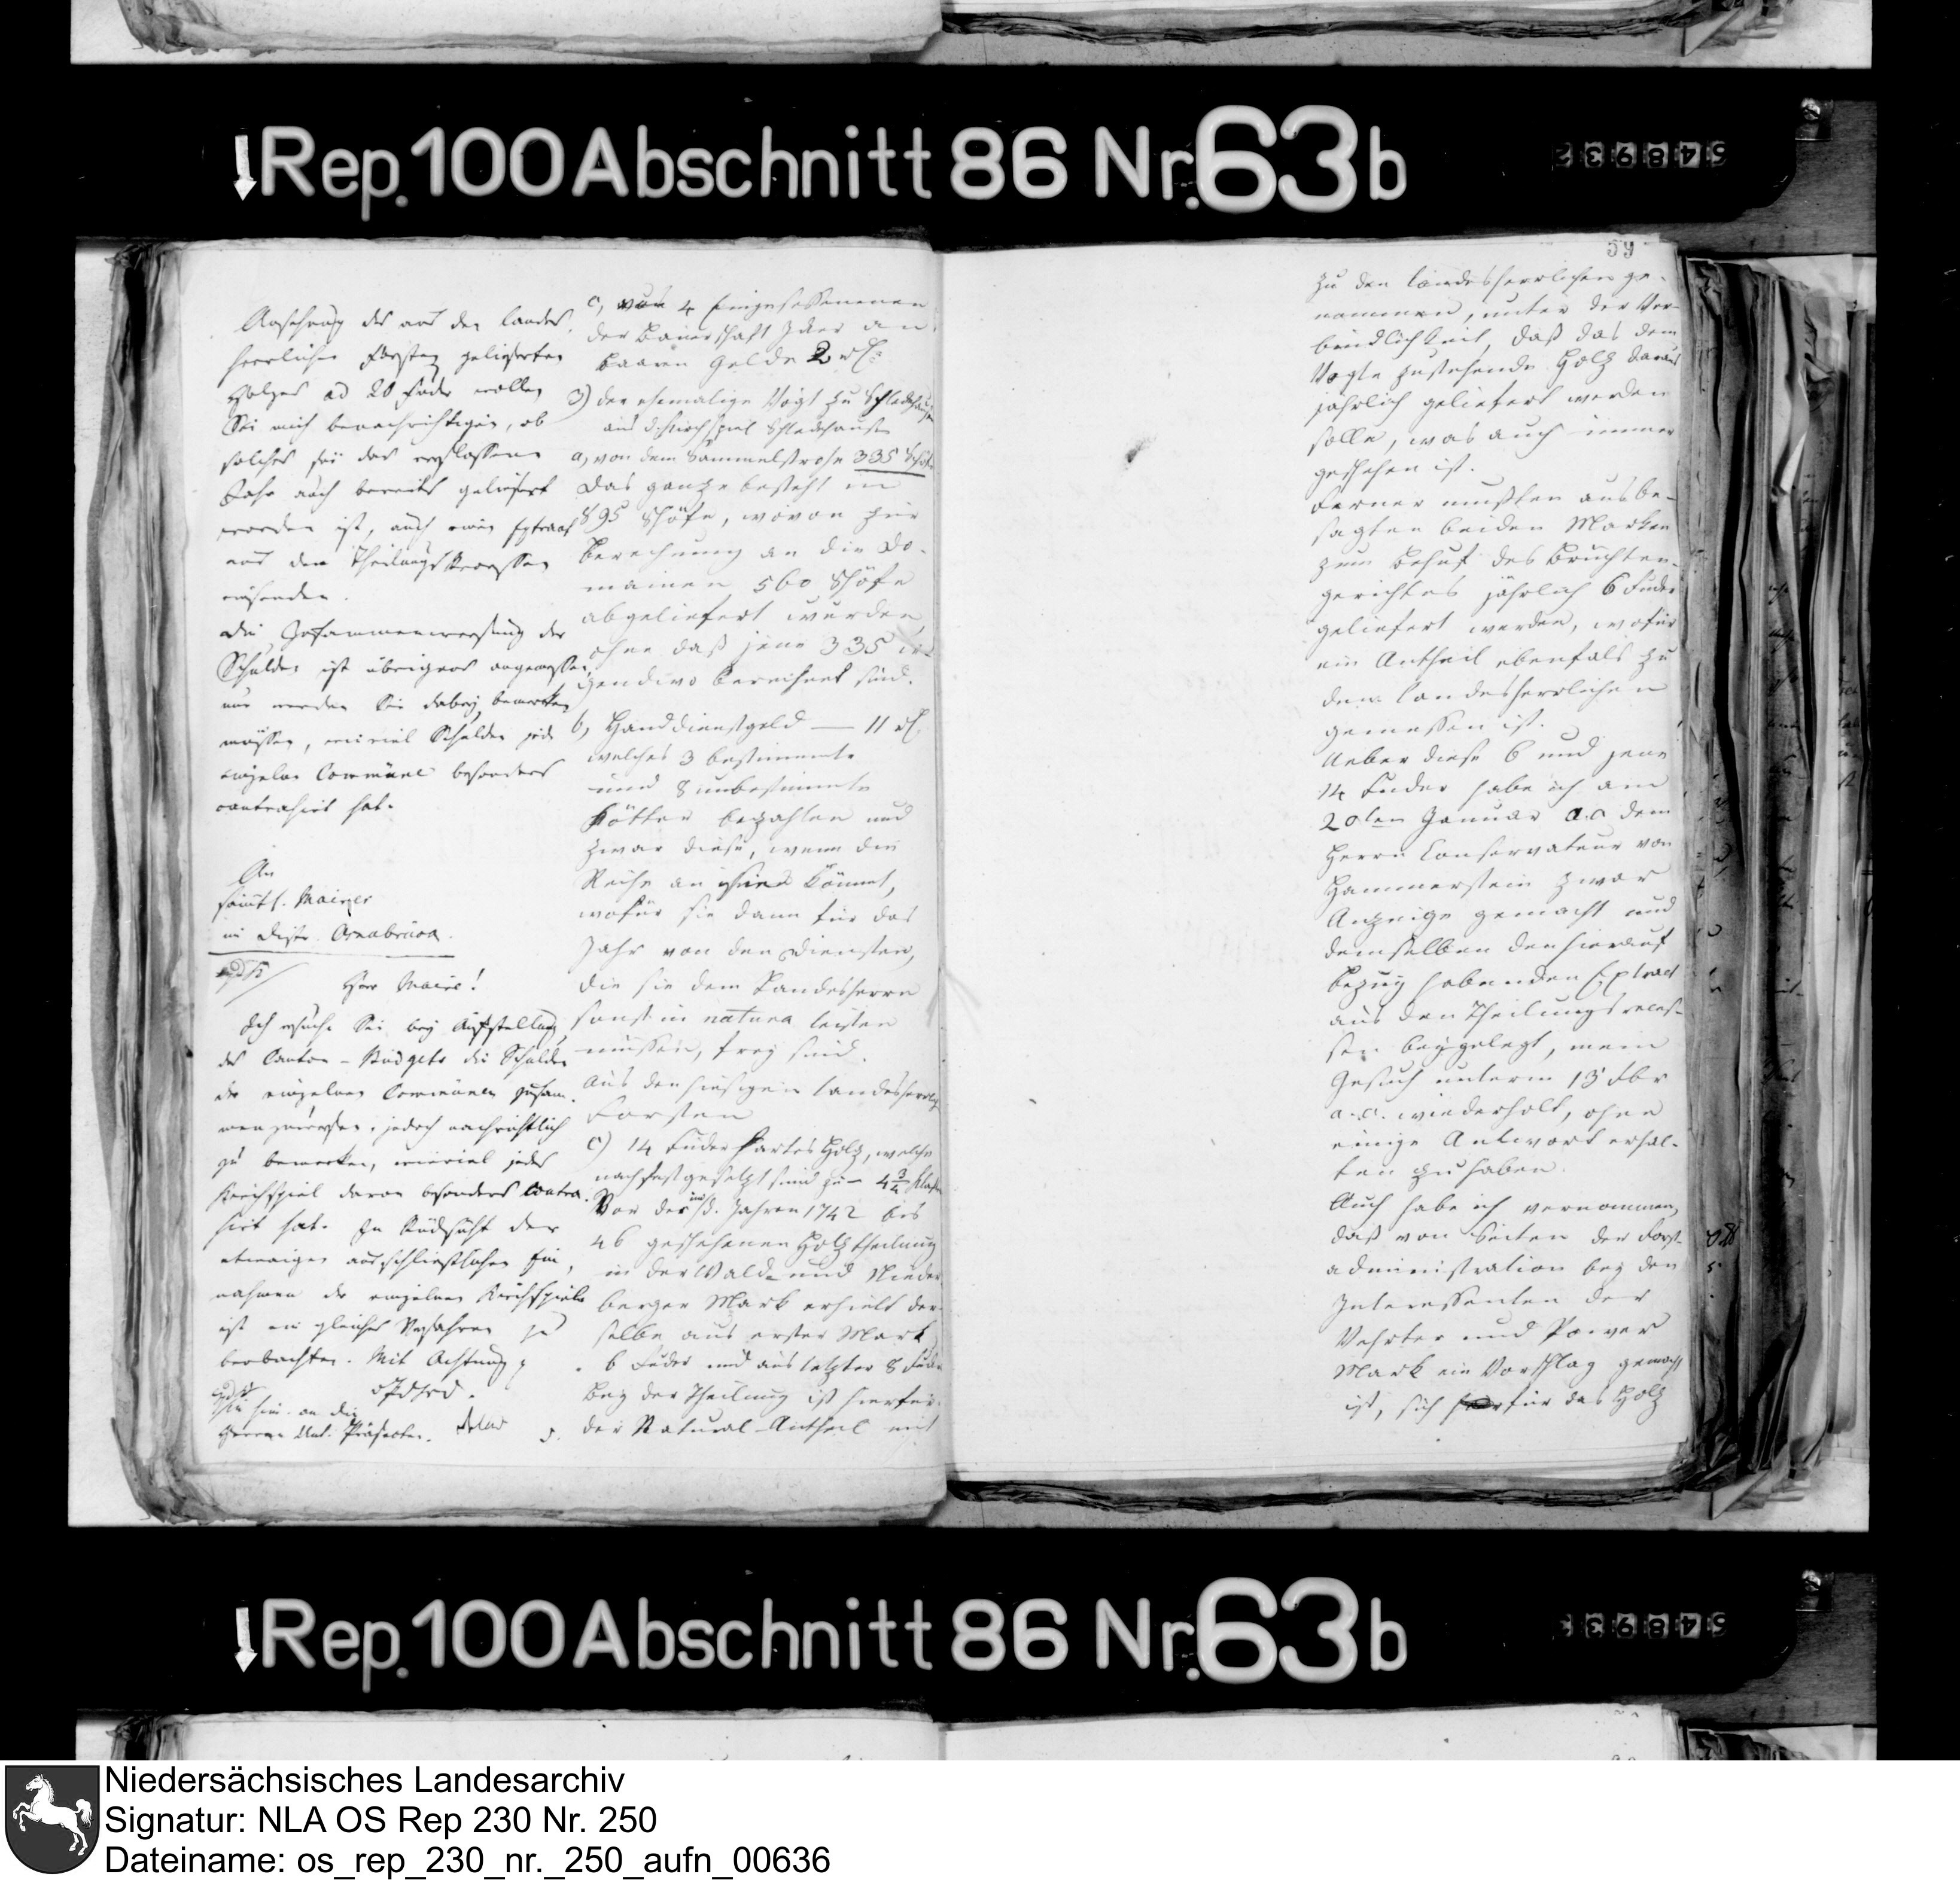 Rep. 100 Abschnitt 86 Nr. 63b
548932
Ansehung des aus den landes
herrlichen Forsten gelieferten
Holzes ad 20 Fuder wollen
Sie mich benachrichtigen, ob
solches für das verflossene
Jahr auch bereits geliefert
worden ist, auch einen Extract
aus den Theilungs Recessen
einsenden.
Die Zusammenwerfung der
Schulden ist übrigens angemessen,
nur werden Sie dabey bemerken
müssen, wieviel Schulden jede
einzelne Commüne besonders
contrahirt hat.
An
sämtl. Maires
im Distr. Osnabrück.
Herr Maire!
Ich ersuche Sie bey Aufstellung
des Canton-Budgets die Schulden
der einzelnen Commünen zusam-
men zuwerfen, jedoch nachrichtlich
zu bemerken, wieviel jedes
Kirchspiel davon besonders contra-
hirt hat. In Rücksicht der
etwaigen ausschließlichen Ein-
nahmen der einzelnen Kirchspiele
ist ein gleiches Verfahren zu
beobachten. Mit Achtung
an den
Herrn Unt. Präfecten.
c, von 4 Eingesessenen
der Bauerschaft Jeker an
baarem Gelde 2 rt.
3) der ehemalige Vogt zu Schledehausen
aus d. Kirchspiel Schledehausen
a, von dem Sammelstrohe 335 Schöfe
Das ganze besteht in
895 Schöfe, wovon zur
Berechnung an die Do-
mainen 560 Schöfe
abgeliefert wurden,
ohne daß jene 335 ir-
gendwo berechnet sind.
b, Handdienstgeld — 11 rt
welches 3 bestimmte
und 8 unbestimmte
Kötter bezahlen und
zwar diese, wenn die
Reihe an ihnen kömmt,
wofür sie dann für das
Jahr von den Diensten,
die sie dem Landesherrn
sonst in natura leisten
müssen, frey sind.
Aus den hiesigen landesherrl.
Forsten
c) 14 Fuder hartes Holz, welche
nach festgesetzt sind zu 4 3/4 Klafter
Vor der in d. Jahren 1742 bis
46 geschehenen Holztheilung
in der Wald- und Nieder
berger Mark erhielt der-
selbe aus erster Mark
6 Fuder und aus letzter 8 Fuder
Bey der Theilung ist hierfür
der Natural-Antheil mit
59
zu den landesherrlichen ge-
nommen, unter der Ver-
bindlichkeit, daß das dem
Vogte zustehende Holz daraus
jährlich geliefert werden
solle, was auch immer
geschehen ist.
Ferner mußten aus be-
sagten beiden Marken
zum Behuf des Brüchten-
gerichtes jährlich 6 Fuder
geliefert werden, wofür
ein Antheil ebenfals zu
den landesherrlichen
gemessen ist.
Ueber diese 6 und jene
14 Fuder habe ich am
20ten Januar a.c. dem
Herrn Conservateur von
Hammerstein zwar
Anzeige gemacht und
demselben den hierauf
bezug habenden Extract
aus den Theilungsreces-
sen beygelegt, mein
Gesuch unterm 13 Fbr
a.c. wiederholt, ohne
einige Antwort erhal-
ten zu haben.
Auch habe ich vernommen,
daß von Seiten der Forst-
administration bey den
Interessenten der
Vehrter und Power
Mark ein Vorschlag gemacht
ist, sich für das Holz
Rep. 100 Abschnitt 86 Nr. 63b
548933
Niedersächsisches Landesarchiv
Signatur: NLA OS Rep 230 Nr. 250
Dateiname: os_rep_230_nr._250_aufn_00636